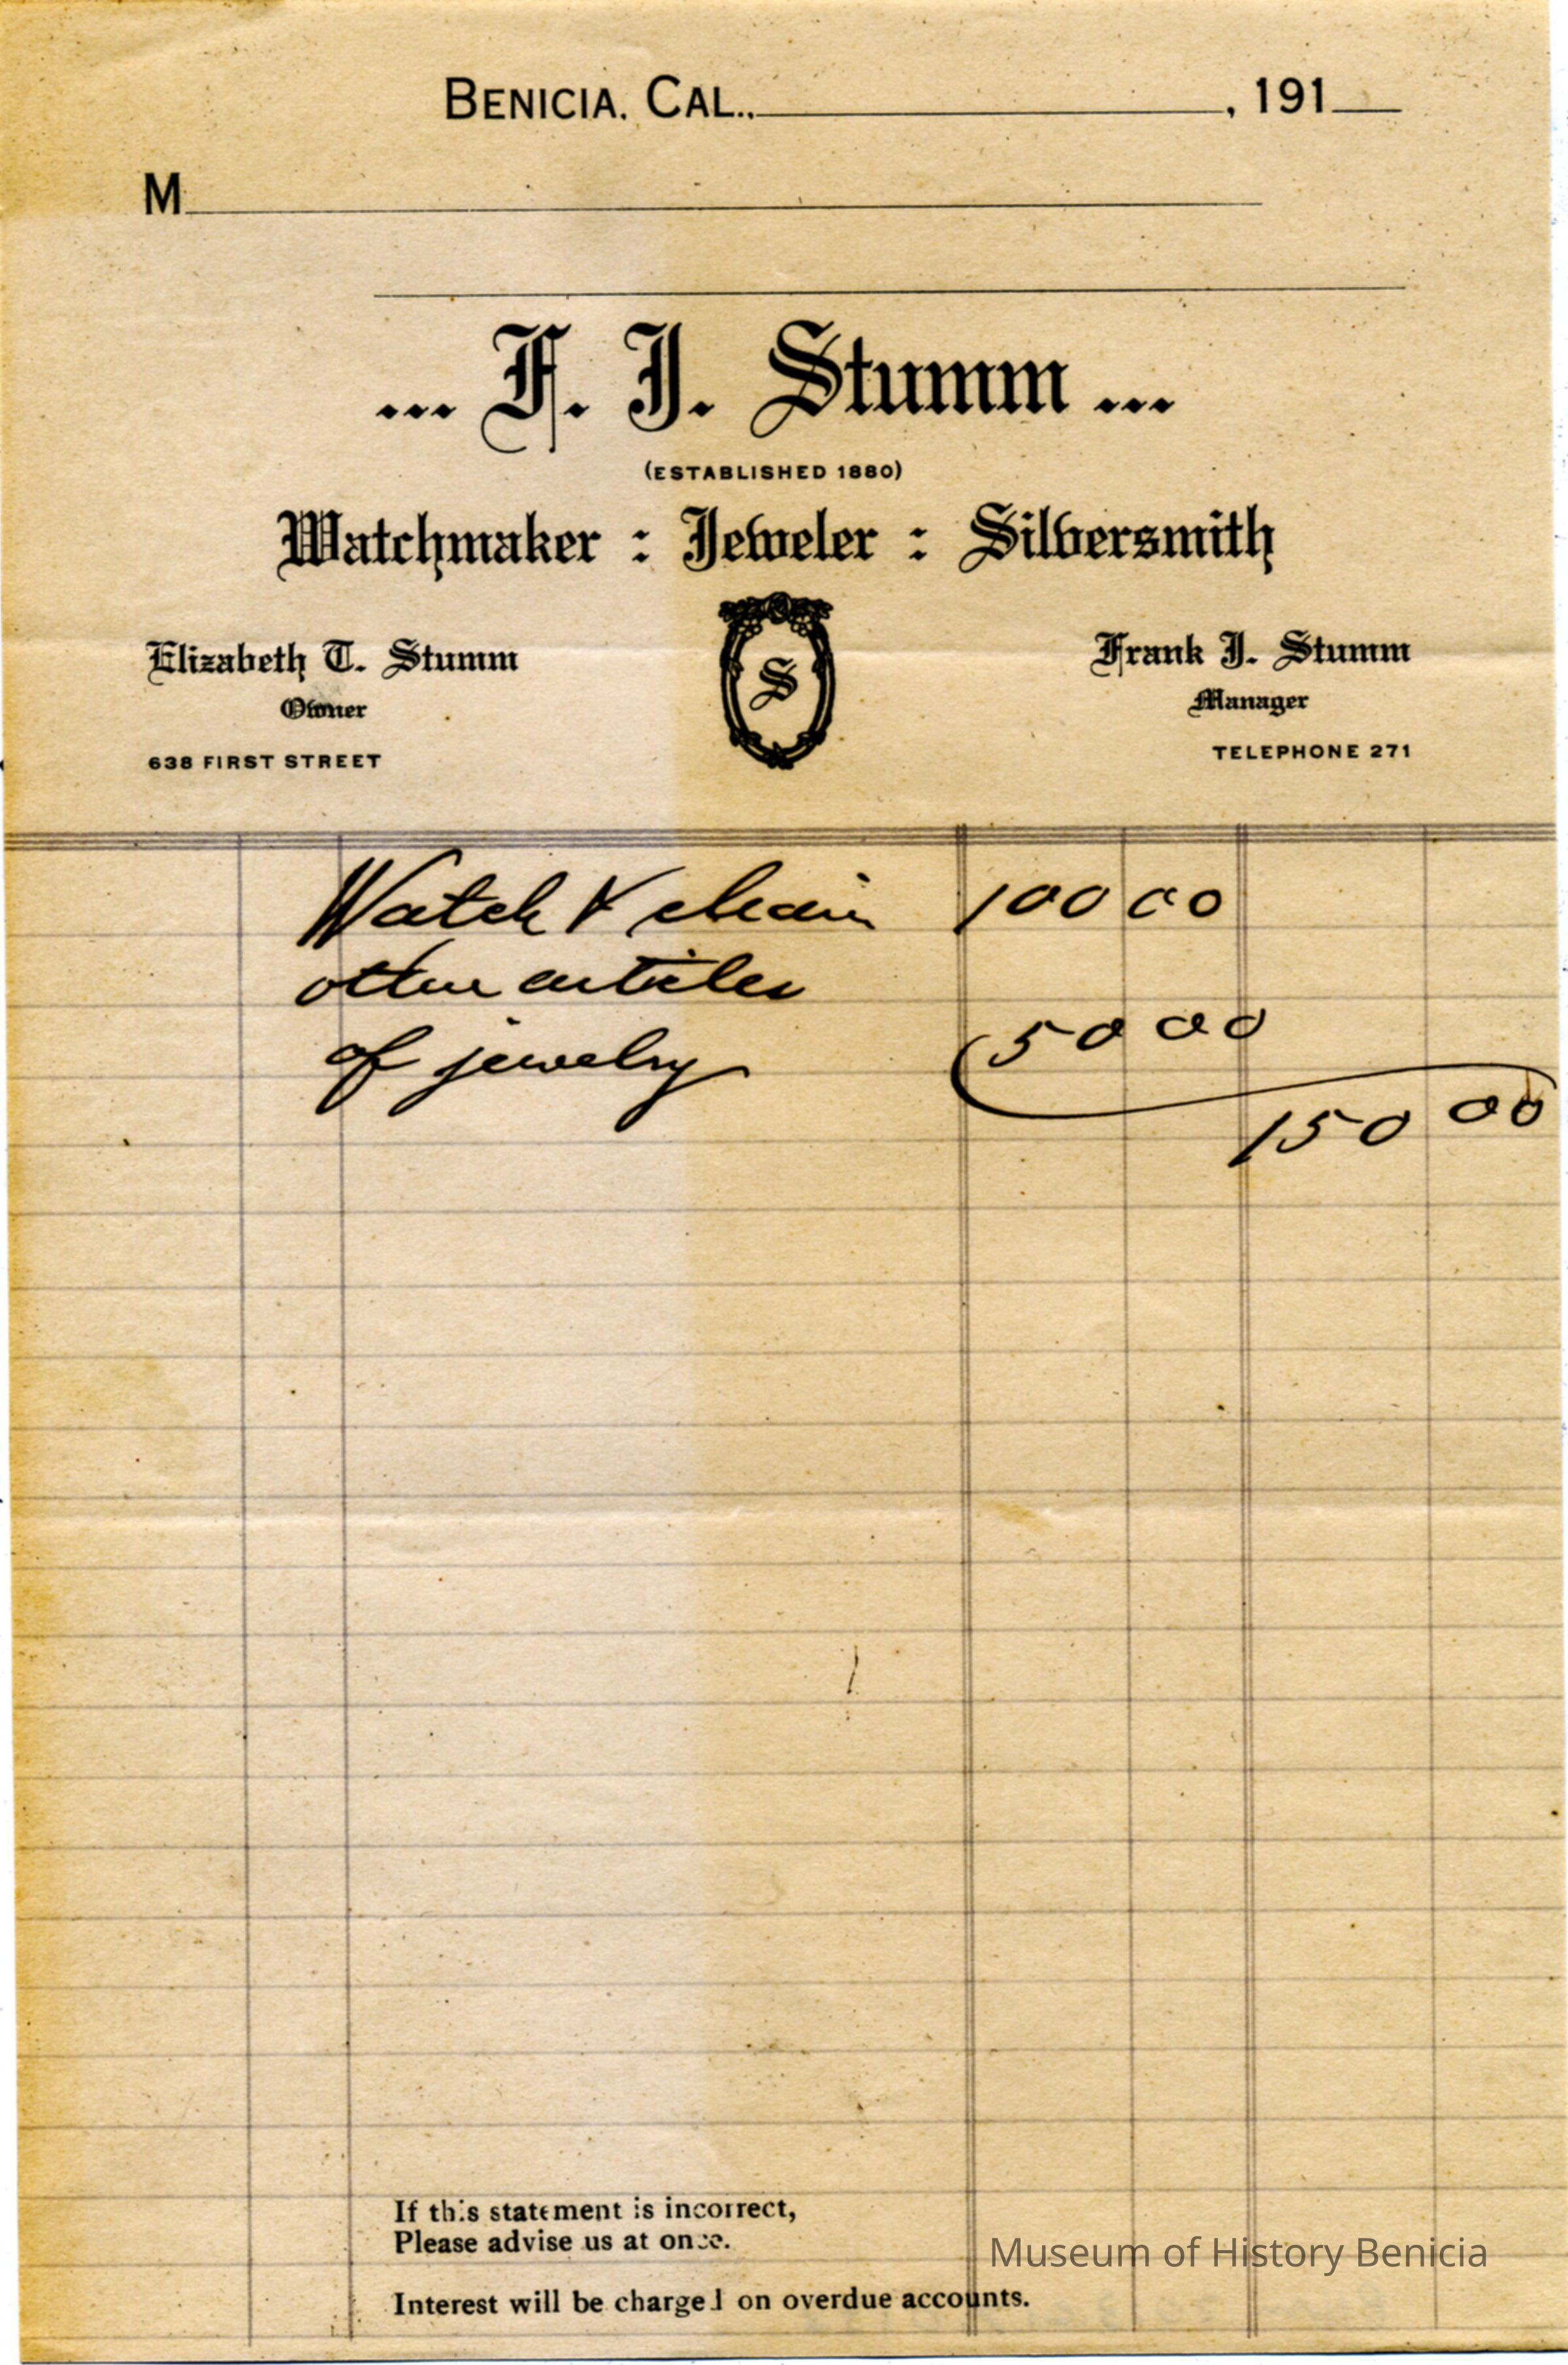 BENICIA, CAL., , 191
M
... F. J. Stumm ...
(ESTABLISHED 1880)
Watchmaker : Jeweler : Silversmith
S
Elizabeth T. Stumm
Frank J. Stumm
Owner
Manager
638 FIRST STREET
TELEPHONE 271
Watch & chain 100 00
other articles
of jewelry 50 00
150 00
If this statement is incorrect,
Please advise us at once.
Museum of History Benicia
Interest will be charged on overdue accounts.